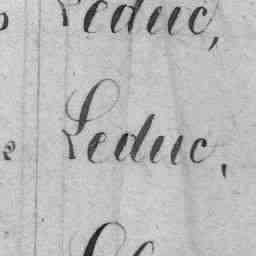 Leduc,
Leduc,